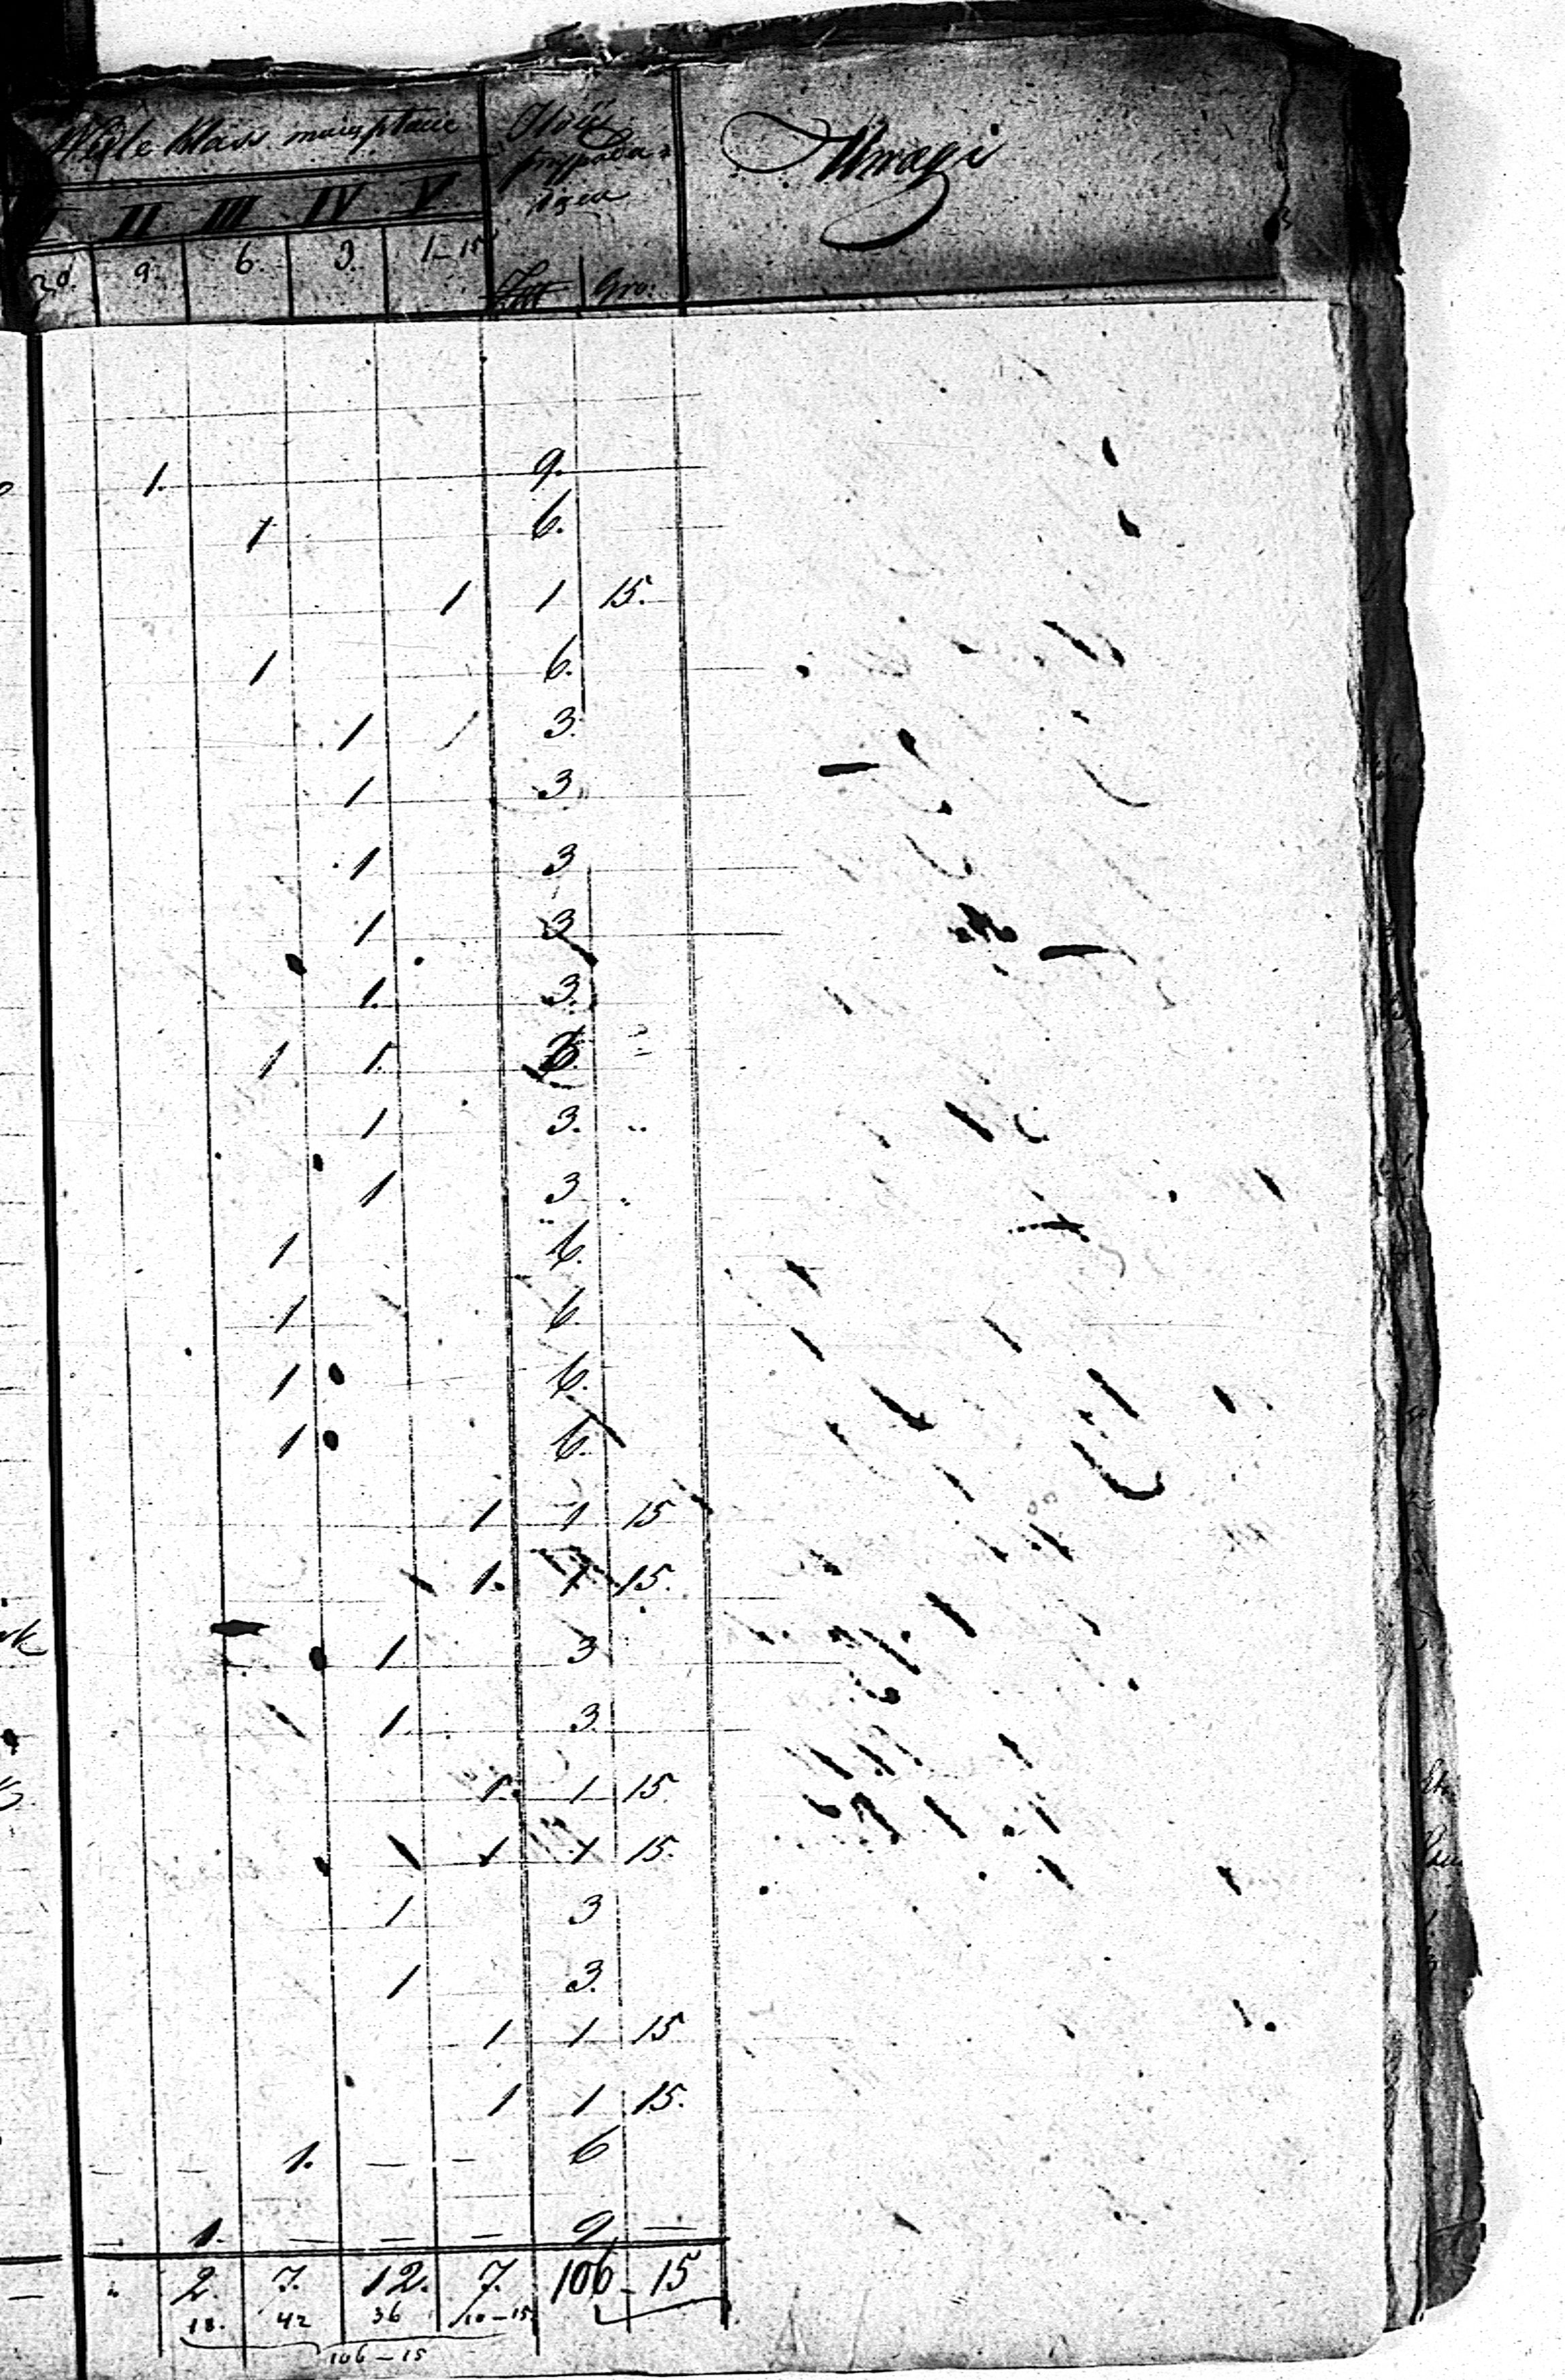 Wedle klass majątkowe Ilość przypada- Uwagi
jąca
I II III IV V
30. 9. 6. 3. 1-15 Złt Gro.
1. 9.
1 6.
1 1 15.
1 6.
1 3.
1 3.
1 3
1 3
1. 3.
1 1.
1 3.
1 3
1 6.
1 6.
1 6.
1 6.
1 1 15
1. 1 15.
1 3
1. 3.
1. 1 15
1 1 15.
1 3
1 3.
1 1 15
1 1 15.
— — 1. — — 6
— 1. — — — 9 —
— „ 2. 7. 12. 7. 106 - 15
18. 42 36 10-15
106-15